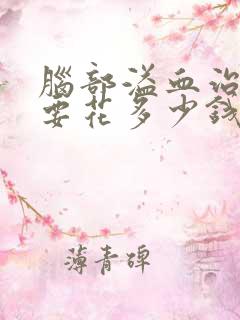 腦部溢血治
要花多少錢
薄青碑